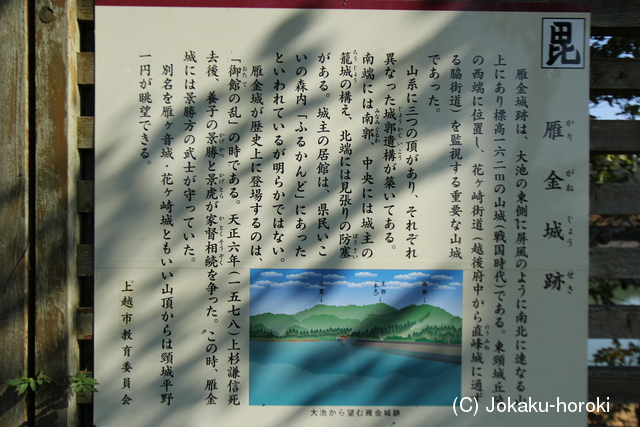 毘
雁金城跡
かりがねじょうせき
雁金城跡は、大池の東側に屏風のように南北に連なる山
上にあり標高一六二mの山城(戦国時代)である。東頸城丘陵
の西端に位置し、花ヶ崎街道(越後府中から直峰城に通ず
のうみね
る脇街道)を監視する重要な山城
であった。
山系に三つの頂があり、それぞれ
異なった城郭遺構が築いてある。
じょうかくいこう
南端には南郭、中央には城主の
みなみくるわ
籠城の構え、北端には見張りの防塞
ろうじょう ぼうさい
がある。城主の居館は、県民いこ
いの森内「ふるかんど」にあった
といわれているが明らかではない。
雁金城が歴史上に登場するのは、
「御館の乱」の時である。天正六年(一五七八)上杉謙信死
おたて
去後、養子の景勝と景虎が家督相続を争った。この時、雁金
かげかつ かげとら かとくそうぞく
城には景勝方の武士が守っていた。
別名を雁ヶ音城、花ヶ崎城ともいい山頂からは頸城平野
一円が眺望できる。
上越市教育委員会
大池から望む雁金城跡
(C) Jokaku-horoki